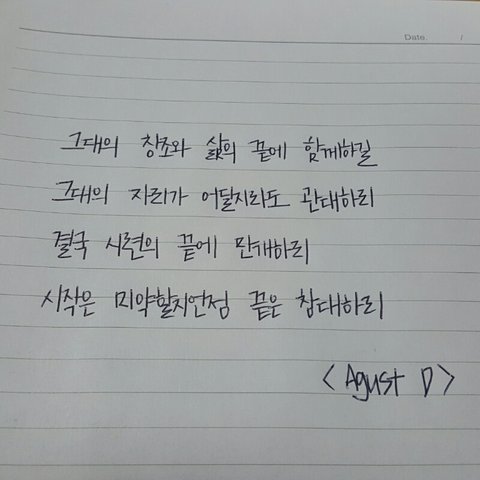 Date. /
그대의 창조와 삶의 끝에 함께하길
그대의 자리가 어딜지라도 관대하리
결국 시련의 끝에 만개하리
시작은 미약할지언정 끝은 창대하리
<Agust D>